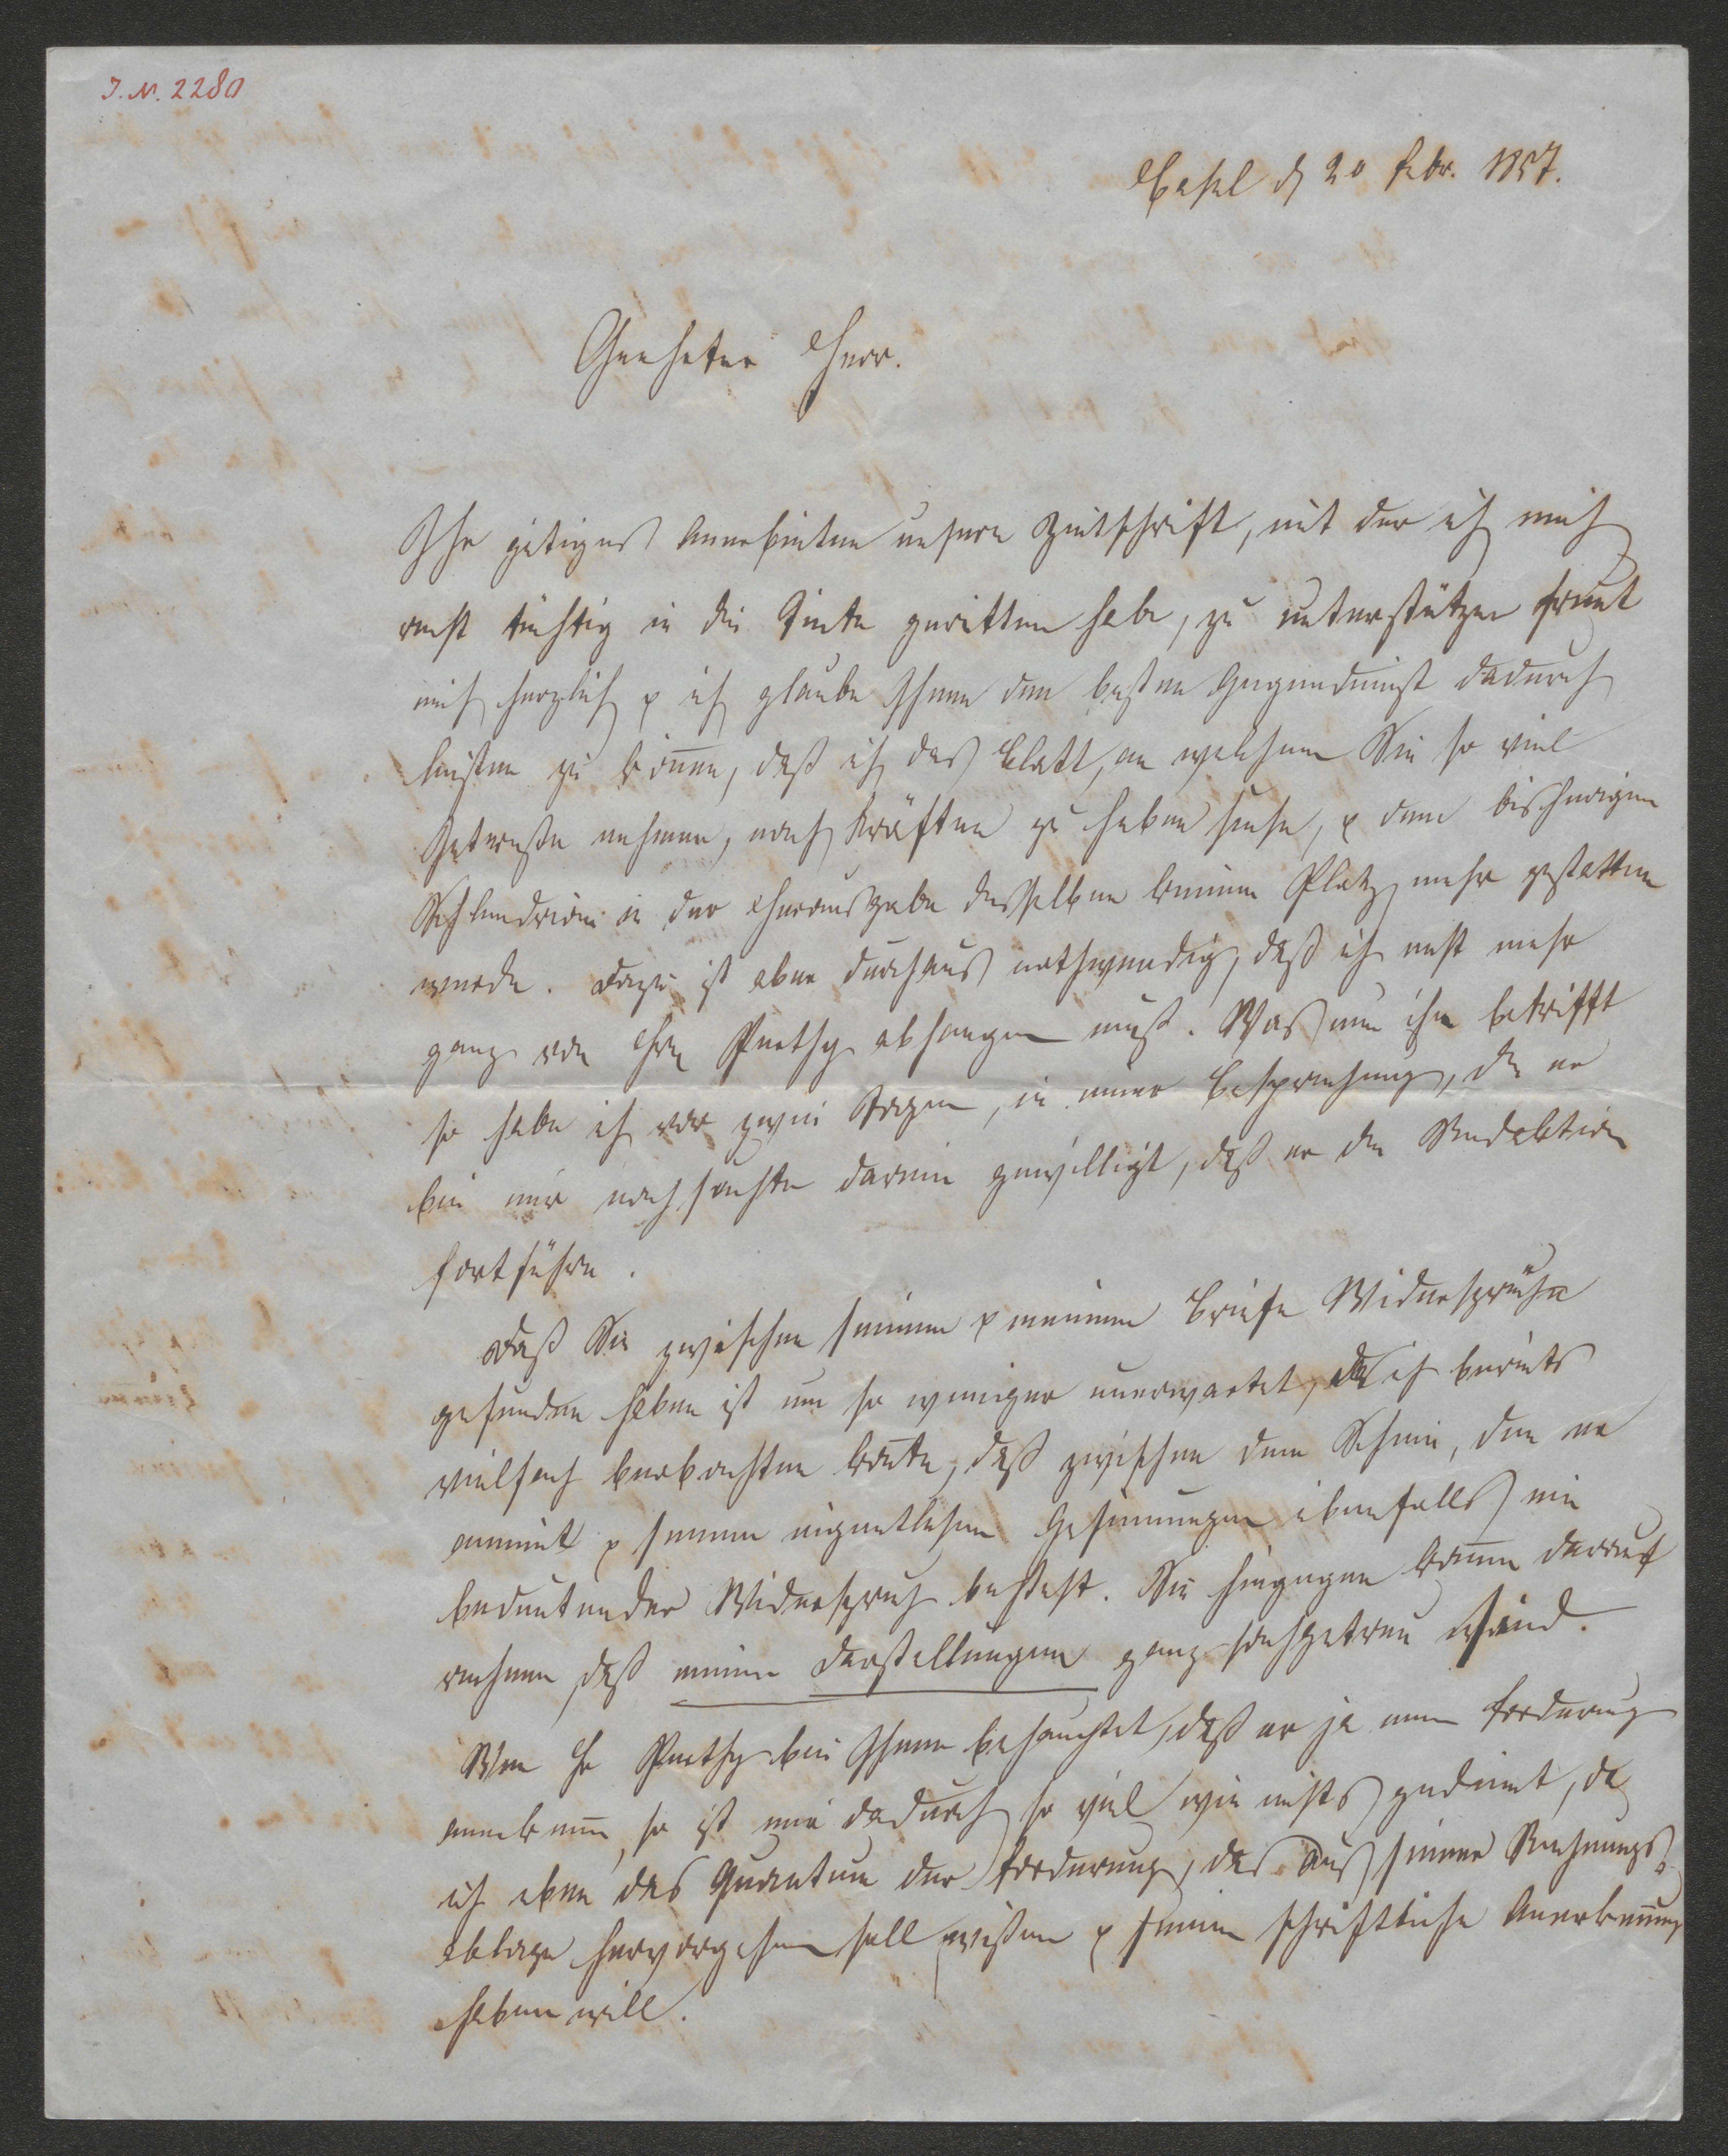 J. N. 2280
Basel d 20 Febr. 1857.
Geehrter Herr.
Ihr gütiges Anerbieten unsere Zeitschrift, mit der ich mich
recht tüchtig in die Tinte geritten habe, zu unterstützen freut
mich herzlich & ich glaube Ihnen den besten Gegendienst dadurch
leisten zu können, daß ich das Blatt, an welchem Sie so viel
Intresse nehmen, nach Kräften zu heben suche, & dem bisherigen
Schlendrian in der Herausgabe desselben keinen Platz mehr gestatten
werde. Dazu ist aber durchaus nothwendig, daß ich nicht mehr
ganz von Hrn Puethy abhangen muß. Was nun ihn betrifft
so habe ich vor zwei Tagen, in einer Besprechung, die er
bei mir nachsuchte darein gewilligt, daß er die Redaktion
fortführe.
Daß Sie zwischen seinem & meinem Briefe Widersprüche
gefunden haben ist um so weniger unerwartet, da ich bereits
vielfach beobachten konnte, daß zwischen dem Schein, den er
annimt & seinen eigentlichen Gesinnungen ebenfalls ein
bedeutender Widerspruch besteht. Sie hingegen können darauf
rechnen, daß meine Darstellungen ganz sachgetreu sind.
Wen Hr Puethy bei Ihnen behauptet, daß er ja meine Forderung
anerkenne, so ist mir dadurch so viel wie nichts gedient, da
ich eben das Quantum der Forderung, das aus seiner Rechnungs-
ablage hervorgehen soll wissen & seine schriftliche Anerkennung
haben will.